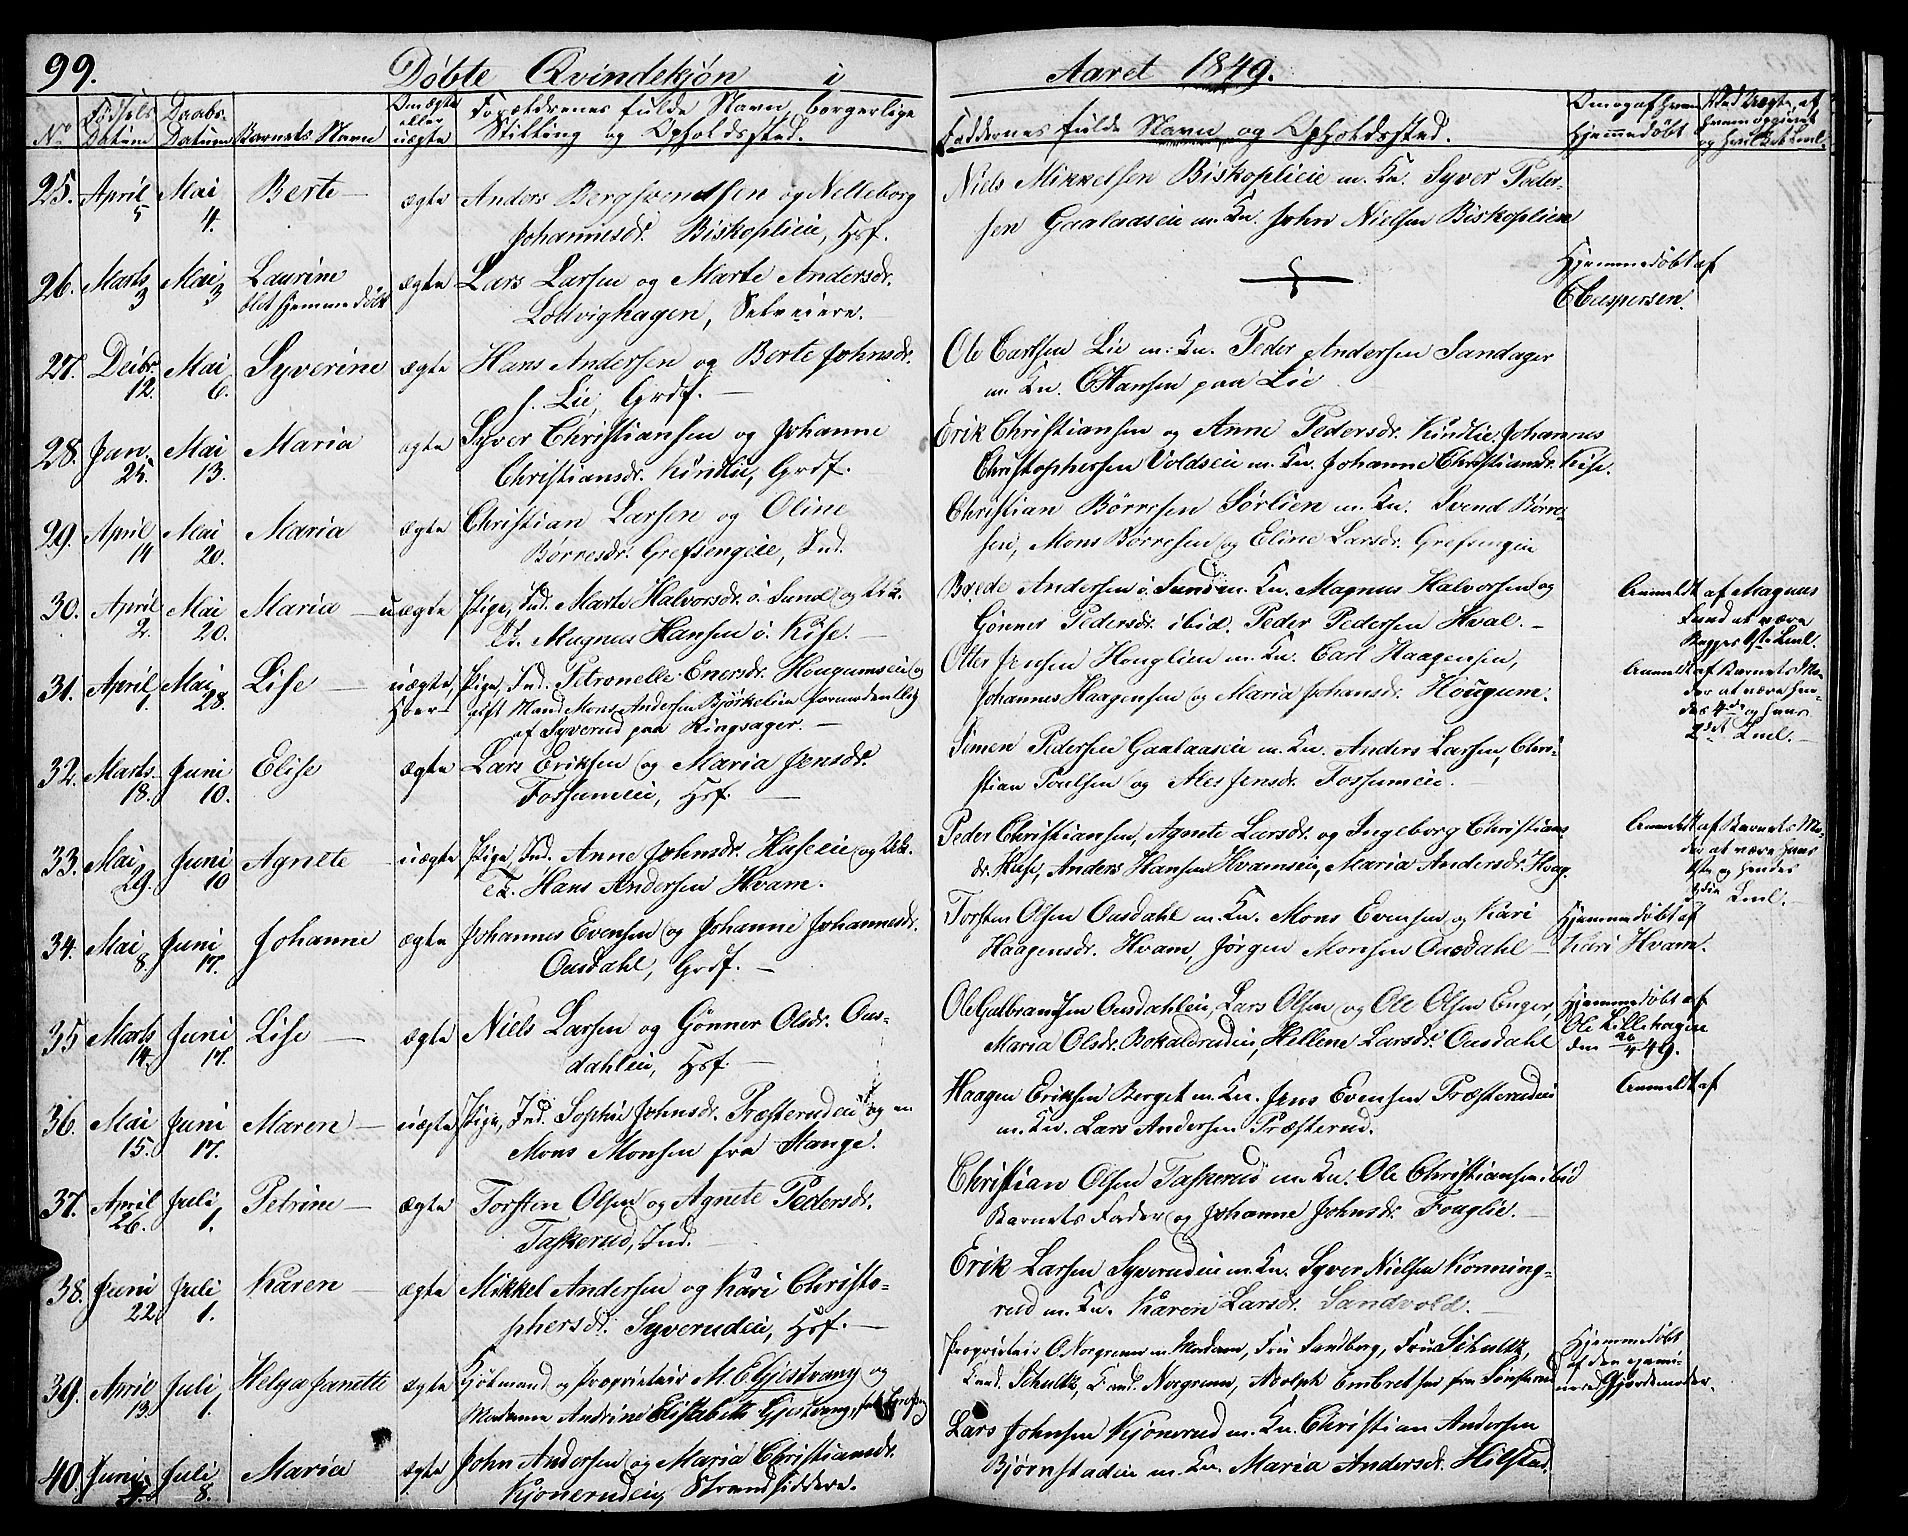 99.
Døbte Qvindekjøn i Aaret 1849.
No Fødsels Datum Daabs Datum Barnets Navn Om ægte eller uægte Forældrenes fulde Navn, borgerlige Stilling og Opholdssted. Faddernes fulde Navn og Opholdssted. Om og af hvem Hjemmedøbt
25. April 5 Mai 4. Berte ægte Anders Bergsvendsen og Nelleborg
Johannesdr. Biskoplien, Hsf.
Niels Mikkelsen Biskoplien m. Kn. Syver Peder-
sen Gaalaaseie m. Kn. John Nielsen Biskoplien
26. Marts 3 Mai 3 Laurine blet hjemmedøbt ægte Lars Larsen og Marte Andersdr.
Lodvighagen, Selveiere.
Hjemmedøbt af
C Caspersen.
27. Decbr. 12. Mai 6. Syverine ægte Hans Andersen og Berte Johnsdr.
s. Lie, Grdf.
Ole Carlsen Lie m. Kn. Peder Andersen Sandager
m. Kn. C Hansen paa Lie
28. Jan. 25. Mai 13. Maria ægte Syver Christiansen og Johanne
Christiansdr. Kindlie, Grdf.
Erik Christiansen og Anne Pedersdr. Kindlie, Johannes
Christophersen Voldseie m. Kn. Johanne Christiansdr. Kise.
29. April 14 Mai 20. Maria ægte Christian Larsen og Oline
Børresdr. Grefsengeie, Ind.
Christian Børresen Sørlien m. Kn. Svend Børre-
sen, Mons Børresen og Eline Larsdr. Grefsengeie
30. April 2. Mai 20. Maria uægte Pige, Ind. Marte Halvorsdr. ö. Sund og Ukk.
Et. Magnus Hansen ö. Kise.
Brede Andersen ö. Sund m. Kn. Magnus Halvorsen og
Gønner Pedersdr. ibid. Peder Pedersen Hval.
Anmeldt af Magnus
Sund at være
Begges 1ste Leml.
31. April 1. Mai 28. Lise uægte, Hoer Pige, Ind. Petronelle Enersdr. Hougumseie og
gift Mand Mons Andersen Bjørkelien formodentlig
af Syverud paa Ringsager.
Olter Jensen Houglien m. Kn. Carl Haagensen,
Johannes Haagensen og Maria Johansdr. Hougum.
Anmeldt af Barnets Mo-
der at være hen-
des 4de og hans
2det Leml.
32. Marts 18. Juni 10. Elise ægte Lars Eriksen og Maria Jensdr.
Fossumeie, Hsf.
Simen Pedersen Gaalaaseie m. Kn. Anders Larsen, Chri-
stian Poulsen og Ales Jensdr. Fossumeie.
33. Mai 29. Juni 10 Agnete uægte Pige, Ind. Anne Johnsdr. Huseeie og Ukk.
Et. Hans Andersen Hvam.
Peder Christiansen, Agnete Larsdr. og Ingeborg Christians-
dr. Huse, Anders Hansen Hvamseie, Maria Andersdr. Hvam.
Anmeldt af Barnets Mo-
der at være hans
1ste og hendes
Leml.
34. Mai 8. Juni 17. Johanne ægte Johannes Evensen og Johanne Johannesdr.
Ousdahl, Grdf.
Torsten Olsen Ousdahl m. Kn. Mons Evensen og Kari
Haagensdr. Hvam, Jørgen Monsen Ousdahl
Hjemmedøbt af
Kari Hvam.
35 Marts 14. Juni 17. Lise ægte Niels Larsen og Gønner Olsdr. Ous-
dahleie, Hsf.
Ole Gulbrandsen Ousdahleie, Lars Olsen og Ole Olsen Enger,
Maria Olsdr. Bokaldrudeie, Hellene Larsdr. Ousdahl
Hjemmedøbt af
Ole Lillehagen
den 20/4 49.
36. Mai 15. Juni 17. Maren uægte Pige, Ind. Sophie Johnsdr. Præsterudeie og en
Mons Monsen fra Stange.
Haagen Eriksen Berget m. Kn. Jens Evensen Præsterudeie
m. Kn. Lars Andersen Præsterud.
Anmeldt af
37. April 26. Juli 1. Petrine ægte Torsten Olsen og Agnete Pedersdr.
Taskerud, Ind.
Christian Olsen Taskerud m. Kn. Ole Christiansen ibid
Barnets Fader og Johanne Johnsdr. Fouglie.
38. Juni 22 Juli 1. Karen ægte Mikkel Andersen og Kari Christo-
phersdr. Syverudeie, Hsf.
Erik Larsen Syverudeie m. Kn. Syver Nielsen Konning-
rud m. Kn. Karen Larsdr. Sandvold.
39. April 13. Juli 1. Helga Janette ægte Kjøbmand og Proprietair M. E. Gjestvang og
Madame Andrine Elisabeth Gjestvang,
Proprietair O. Norgreen m. Madam, Fru Sandberg, Fru Schultz,
Cand. Schultz, Cand. Norgreen, Adolph Embretsen fra
Hjemmedøbt
af den exami-
nered Gjordemoder.
40. Juni Juli 8. Maria ægte John Andersen og Maria Christiansdr.
Kjønerudeie, Strandsiddere.
Lars Johnsen Kjønerud m. Kn. Christian Andersen
Bjørnstadeie m. Kn. Maria Andersdr. Hilstad.